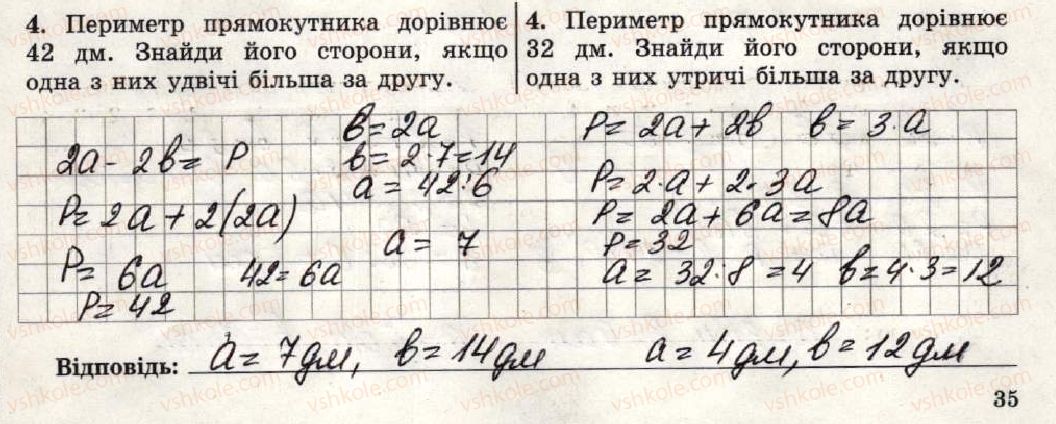 4. Периметр прямокутника дорівнює
42 дм. Знайди його сторони, якщо
одна з них удвічі більша за другу.
4. Периметр прямокутника дорівнює
32 дм. Знайди його сторони, якщо
одна з них утричі більша за другу.
в = 2а
2а - 2в = Р
в = 2·7=14
а = 42:6
Р= 2а + 2(2а)
а = 7
Р= 6а 42=6а
Р= 42
Р= 2а + 2в в = 3·а
Р= 2·а + 2·3а
Р= 2а + 6а = 8а
Р= 32
а = 32:8 = 4 в = 4·3 = 12
Відповідь: а = 7дм, в = 14дм а = 4дм, в = 12дм
35
vshkole.com